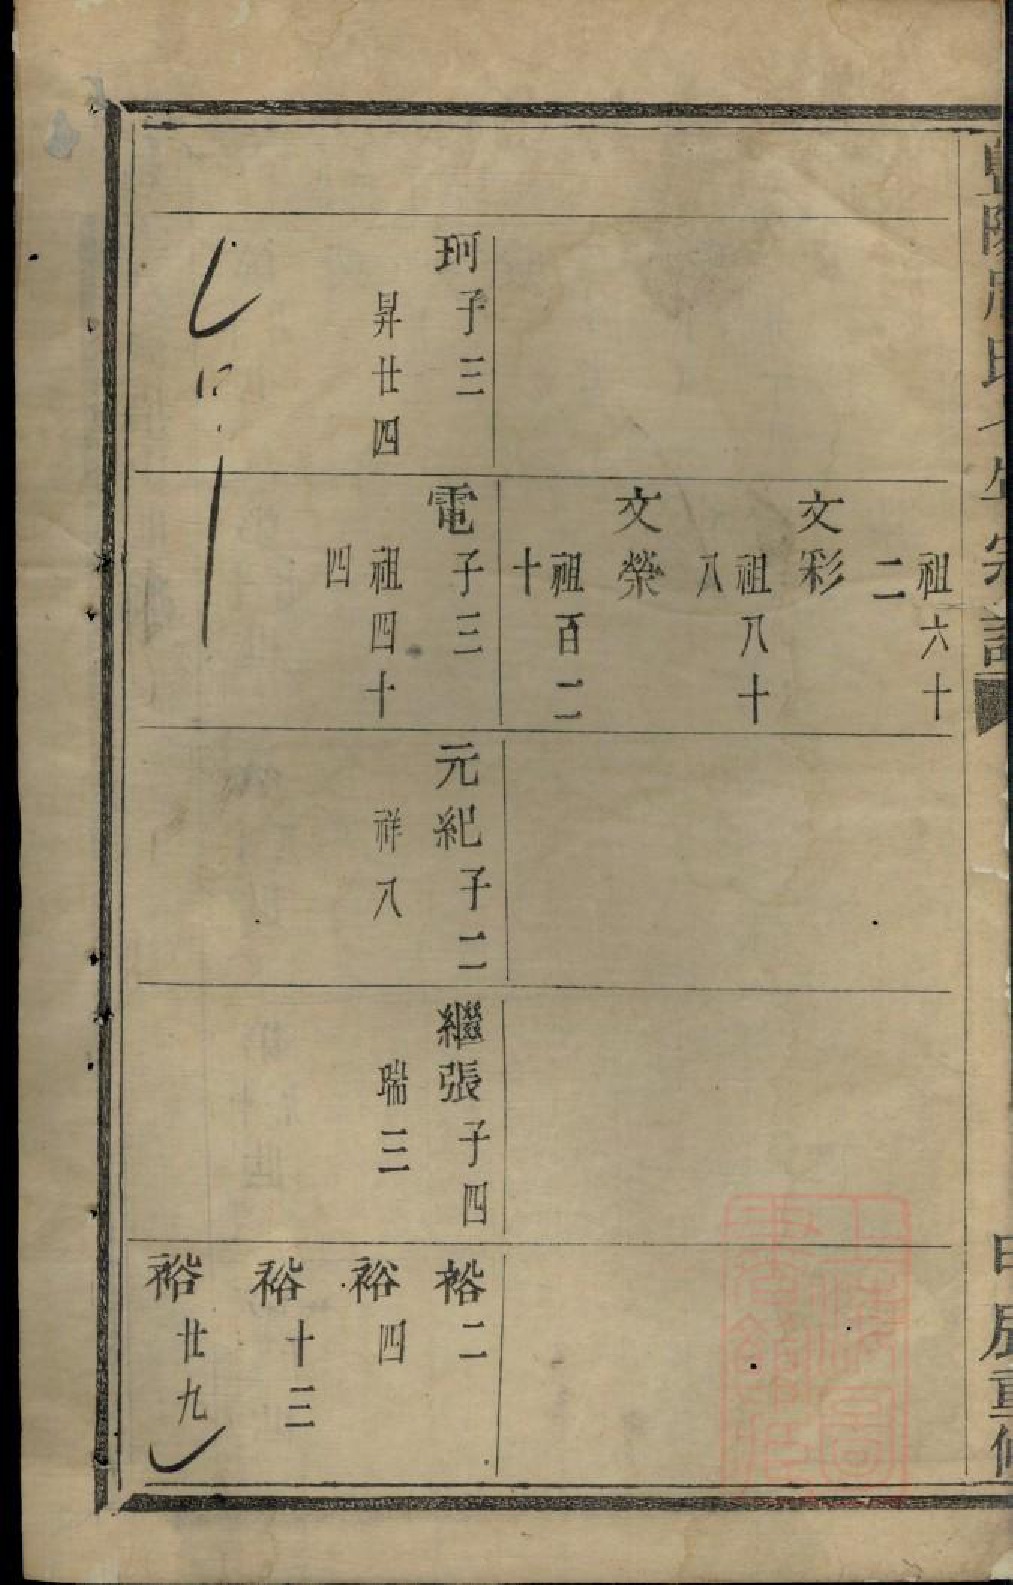 暨陽
氏
宗譜
重修
珂子三
昇廿四
祖六十
二
文彩
祖八十
八
文榮
祖百二
十
電子三
祖四十
四
元紀子二
祥八
繼張子四
瑞三
裕二
裕四
裕十三
裕廿九